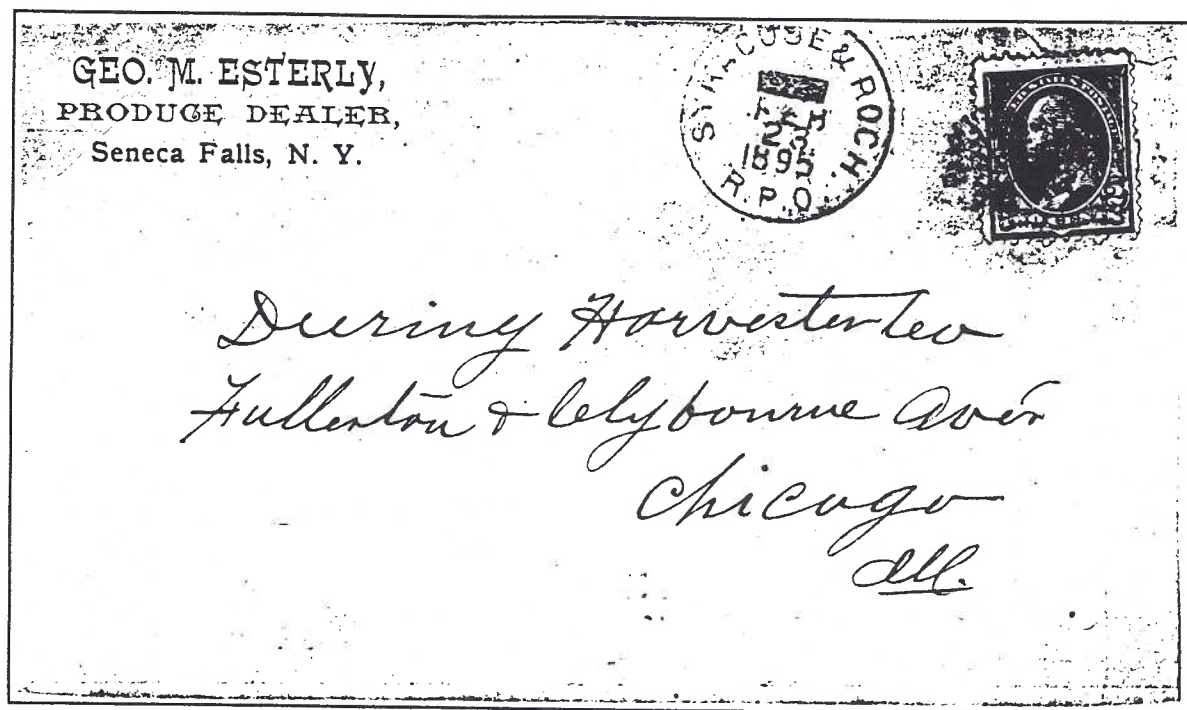 GEO. M. ESTERLY,
PRODUCE DEALER,
Seneca Falls, N. Y.
SYRACUSE & ROCH.
25
1895
R.P.O.
Deering Harvester Co
Fullerton & Clybourne Aves
Chicago
Ill.